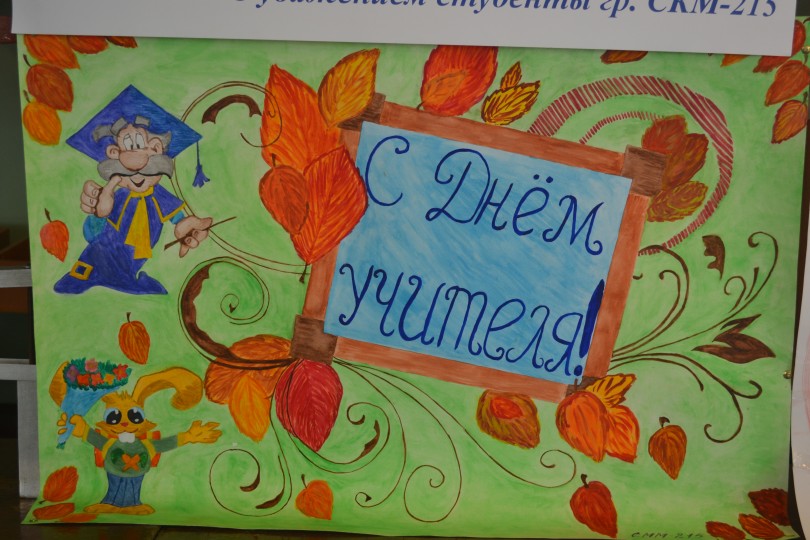 уважением студенты гр. СКМ-215
С Днём
учителя!
СММ 215